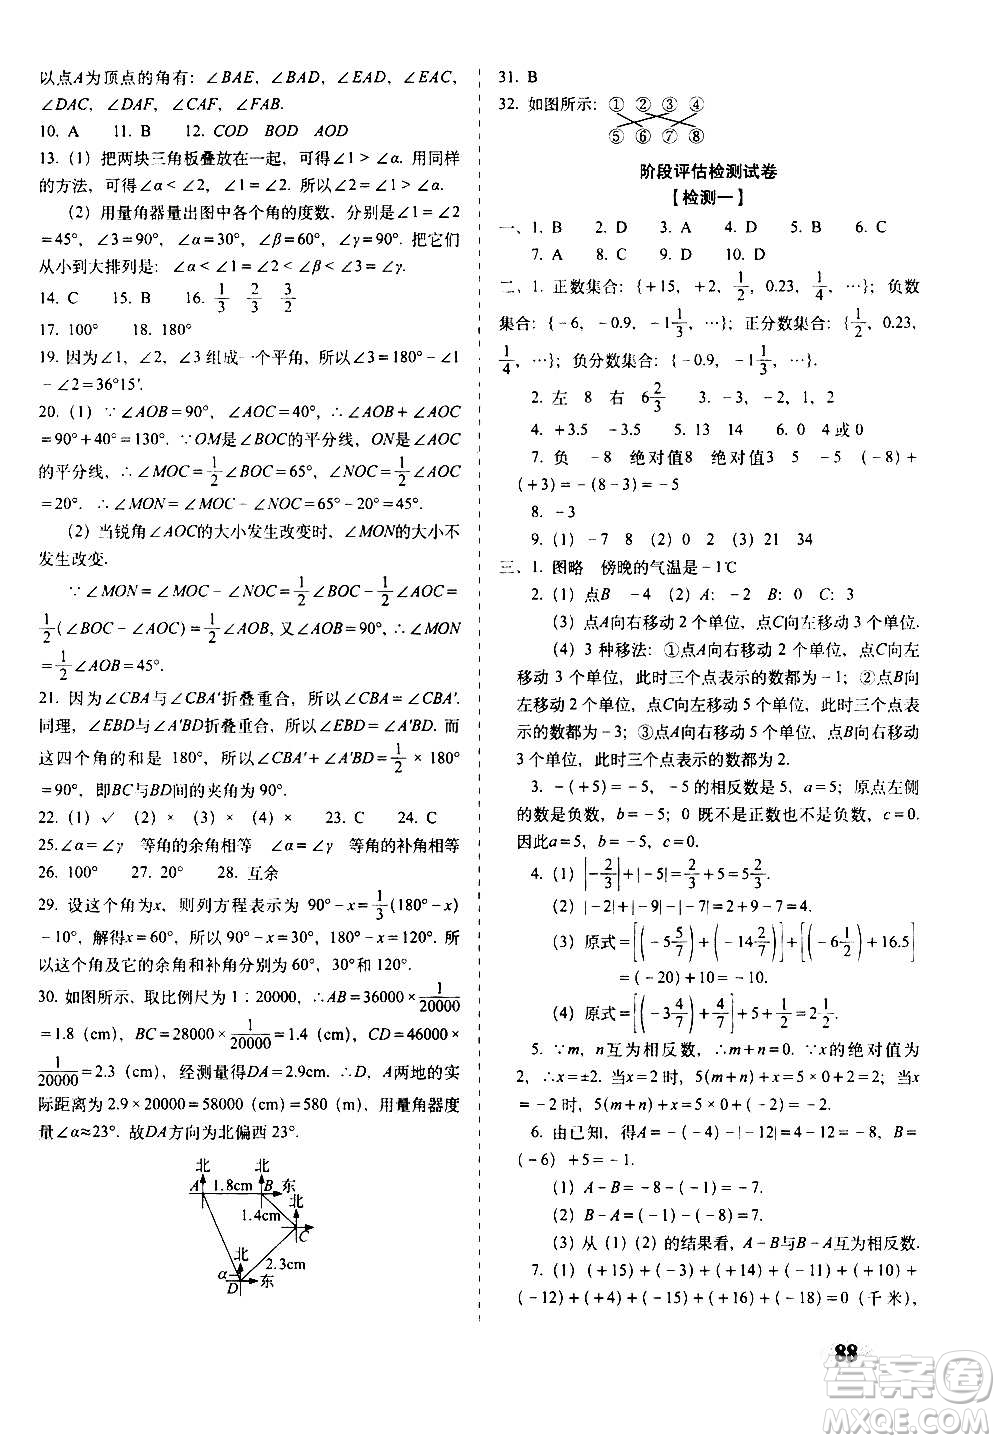 以点A为顶点的角有：∠BAE，∠BAD，∠EAD，∠EAC，
∠DAC，∠DAF，∠CAF，∠FAB.
10. A  11. B  12. COD  BOD  AOD
13. (1) 把两块三角板叠放在一起，可得∠1＞∠α. 用同样
的方法，可得∠α＜∠2，∠α＜∠1. 所以∠1＞∠α.
(2) 用量角器量出图中各个角的度数，可得∠1＝∠2
＝45°，∠3＝90°，∠α＝30°，∠β＝60°，∠γ＝90°. 把它们
从小到大排列是：∠α＜∠1＝∠2＜∠β＜∠3＝∠γ.
14. C  15. B  16. 1/3  2/3  3/2
17. 100°  18. 180°
19. 因为∠1，∠2，∠3组成一个平角，所以∠3＝180°－∠1
－∠2＝36°15′.
20. (1) ∵∠AOB＝90°，∠AOC＝40°，∴∠AOB＋∠AOC
＝90°＋40°＝130°. ∵OM是∠BOC的平分线，ON是∠AOC
的平分线，∴∠MOC＝1/2∠BOC＝65°，∠NOC＝1/2∠AOC
＝20°. ∴∠MON＝∠MOC－∠NOC＝65°－20°＝45°.
(2) 当锐角∠AOC的大小发生改变时，∠MON的大小不
发生改变.
∵∠MON＝∠MOC－∠NOC＝1/2∠BOC－1/2∠AOC＝
1/2(∠BOC－∠AOC)＝1/2∠AOB，又∠AOB＝90°，∴∠MON
＝1/2∠AOB＝45°.
21. 因为∠CBA与∠CBA′折叠重合，所以∠CBA＝∠CBA′.
同理，∠EBD与∠A′BD折叠重合，所以∠EBD＝∠A′BD. 而
这四个角的和是180°，所以∠CBA′＋∠A′BD＝1/2×180°
＝90°，即BC与BD间的夹角为90°.
22. (1) ✓  (2) ×  (3) ×  (4) ×  23. C  24. C
25. ∠α＝∠γ  等角的余角相等  ∠α＝∠γ  等角的补角相等
26. 100°  27. 20°  28. 互余
29. 设这个角为x，则列方程表示为 90°－x＝1/3(180°－x)
－10°，解得x＝60°，所以90°－x＝30°，180°－x＝120°. 所
以这个角及它的余角和补角分别为60°，30°和120°.
30. 如图所示，取比例尺为1∶20000，∴AB＝36000×1/20000
＝1.8（cm），BC＝28000×1/20000＝1.4（cm），CD＝46000×
1/20000＝2.3（cm），经测量得DA＝2.9cm. ∴D，A两地的实
际距离为2.9×20000＝58000（cm）＝580（m），用量角器度
量∠α≈23°. 故DA方向为北偏西23°.
北 北
A 1.8cm B 东
1.4cm 北
C
北 2.3cm
α
D 东
31. B
32. 如图所示：① ② ③ ④
⑤ ⑥ ⑦ ⑧
阶段评估检测试卷
【检测一】
一、1. B  2. D  3. A  4. D  5. B  6. C
7. A  8. C  9. D  10. D
二、1. 正数集合：{＋15，＋2，1/2，0.23，1/4，…}；负数
集合：{－6，－0.9，－1 1/3，…}；正分数集合：{1/2，0.23，
1/4，…}；负分数集合：{－0.9，－1 1/3，…}.
2. 左  8  右  6 2/3  3. －2，1，2
4. ＋3.5  －3.5  5. 13  14  6. 0  4或0
7. 负  －8  绝对值8  绝对值3  5  －5  (－8)＋
(＋3)＝－(8－3)＝－5
8. －3
9. (1) －7  8  (2) 0  2  (3) 21  34
三、1. 图略  傍晚的气温是－1℃
2. (1) 点B  －4  (2) A：－2  B：0  C：3
(3) 点A向右移动2个单位，点C向左移动3个单位.
(4) 3种移法：①点A向右移动3个单位，点C向左
移动3个单位，此时三个点表示的数都为－1；②点B向
左移动2个单位，点C向左移动5个单位，此时三个点表
示的数都为－3；③点A向右移动5个单位，点B向右移动
3个单位，此时三个点表示的数都为2.
3. －(＋5)＝－5，－5的相反数是5，a＝5；原点左侧
的数是负数，b＝－5；0既不是正数也不是负数，c＝0.
因此a＝5，b＝－5，c＝0.
4. (1) |－2/3|＋|－5|＝2/3＋5＝5 2/3.
(2) |－2|＋|－9|－|－7|＝2＋9－7＝4.
(3) 原式＝[(－5 5/7)＋(－14 2/7)]＋[(－6 1/2)＋16.5]
＝(－20)＋10＝－10.
(4) 原式＝[(－3 4/7)＋4/7]＋5 1/2＝2 1/2.
5. ∵m，n互为相反数，∴m＋n＝0. ∵x的绝对值为
2，∴x＝±2. 当x＝2时，5(m＋n)＋x＝5×0＋2＝2；当x
＝－2时，5(m＋n)＋x＝5×0＋(－2)＝－2.
6. 由已知，得A＝－(－4)－|－12|＝4－12＝－8，B＝
(－6)＋5＝－1.
(1) A－B＝－8－(－1)＝－7.
(2) B－A＝(－1)－(－8)＝7.
(3) 从(1)(2)的结果看，A－B与B－A互为相反数.
7. (1) (＋15)＋(－3)＋(＋14)＋(－11)＋(＋10)＋
(－12)＋(＋4)＋(－15)＋(＋16)＋(－18)＝0（千米），
88
答案圈
MXQE.COM